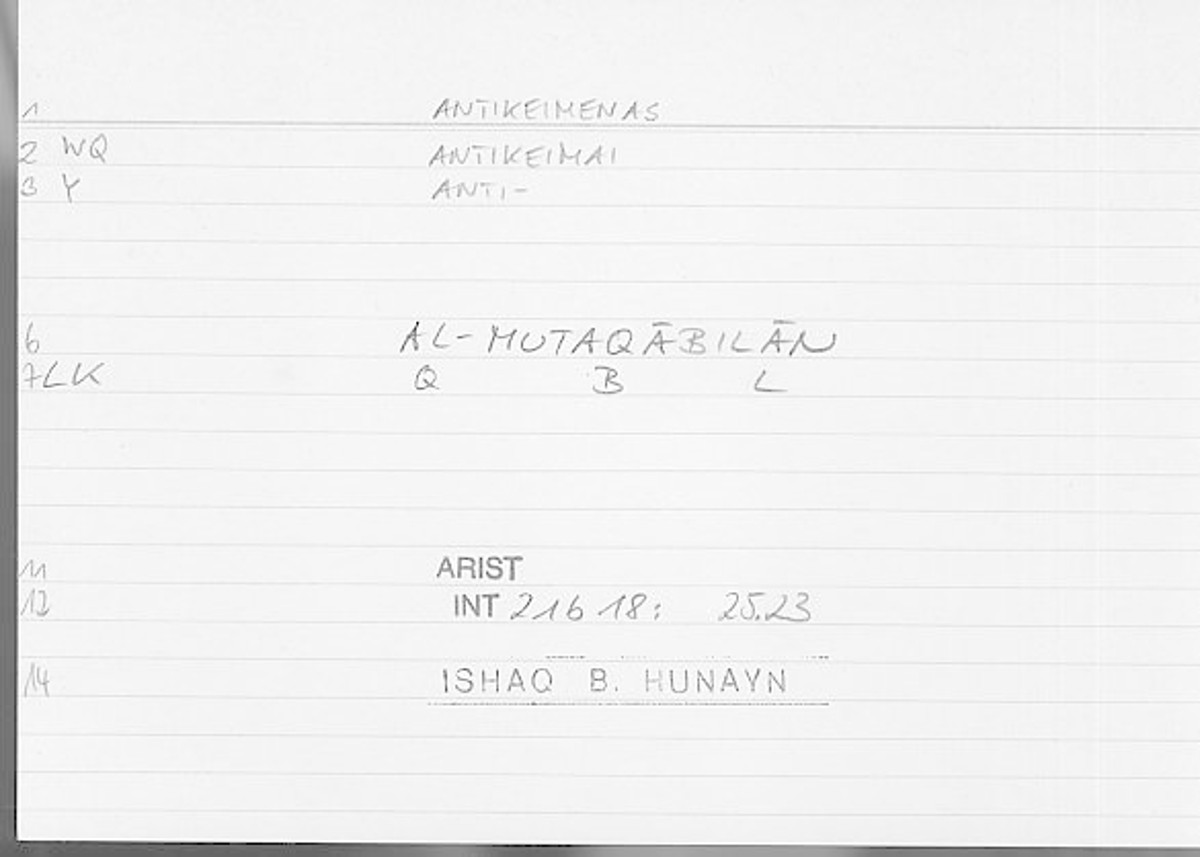 1 ANTIKEIMENAS
2 WQ ANTIKEIMAI
3 Y ANTI-
6 AL-MUTAQĀBILĀN
7LK Q B L
11 ARIST
12 INT 21b 18: 25.23
14 ISHAQ B. HUNAYN